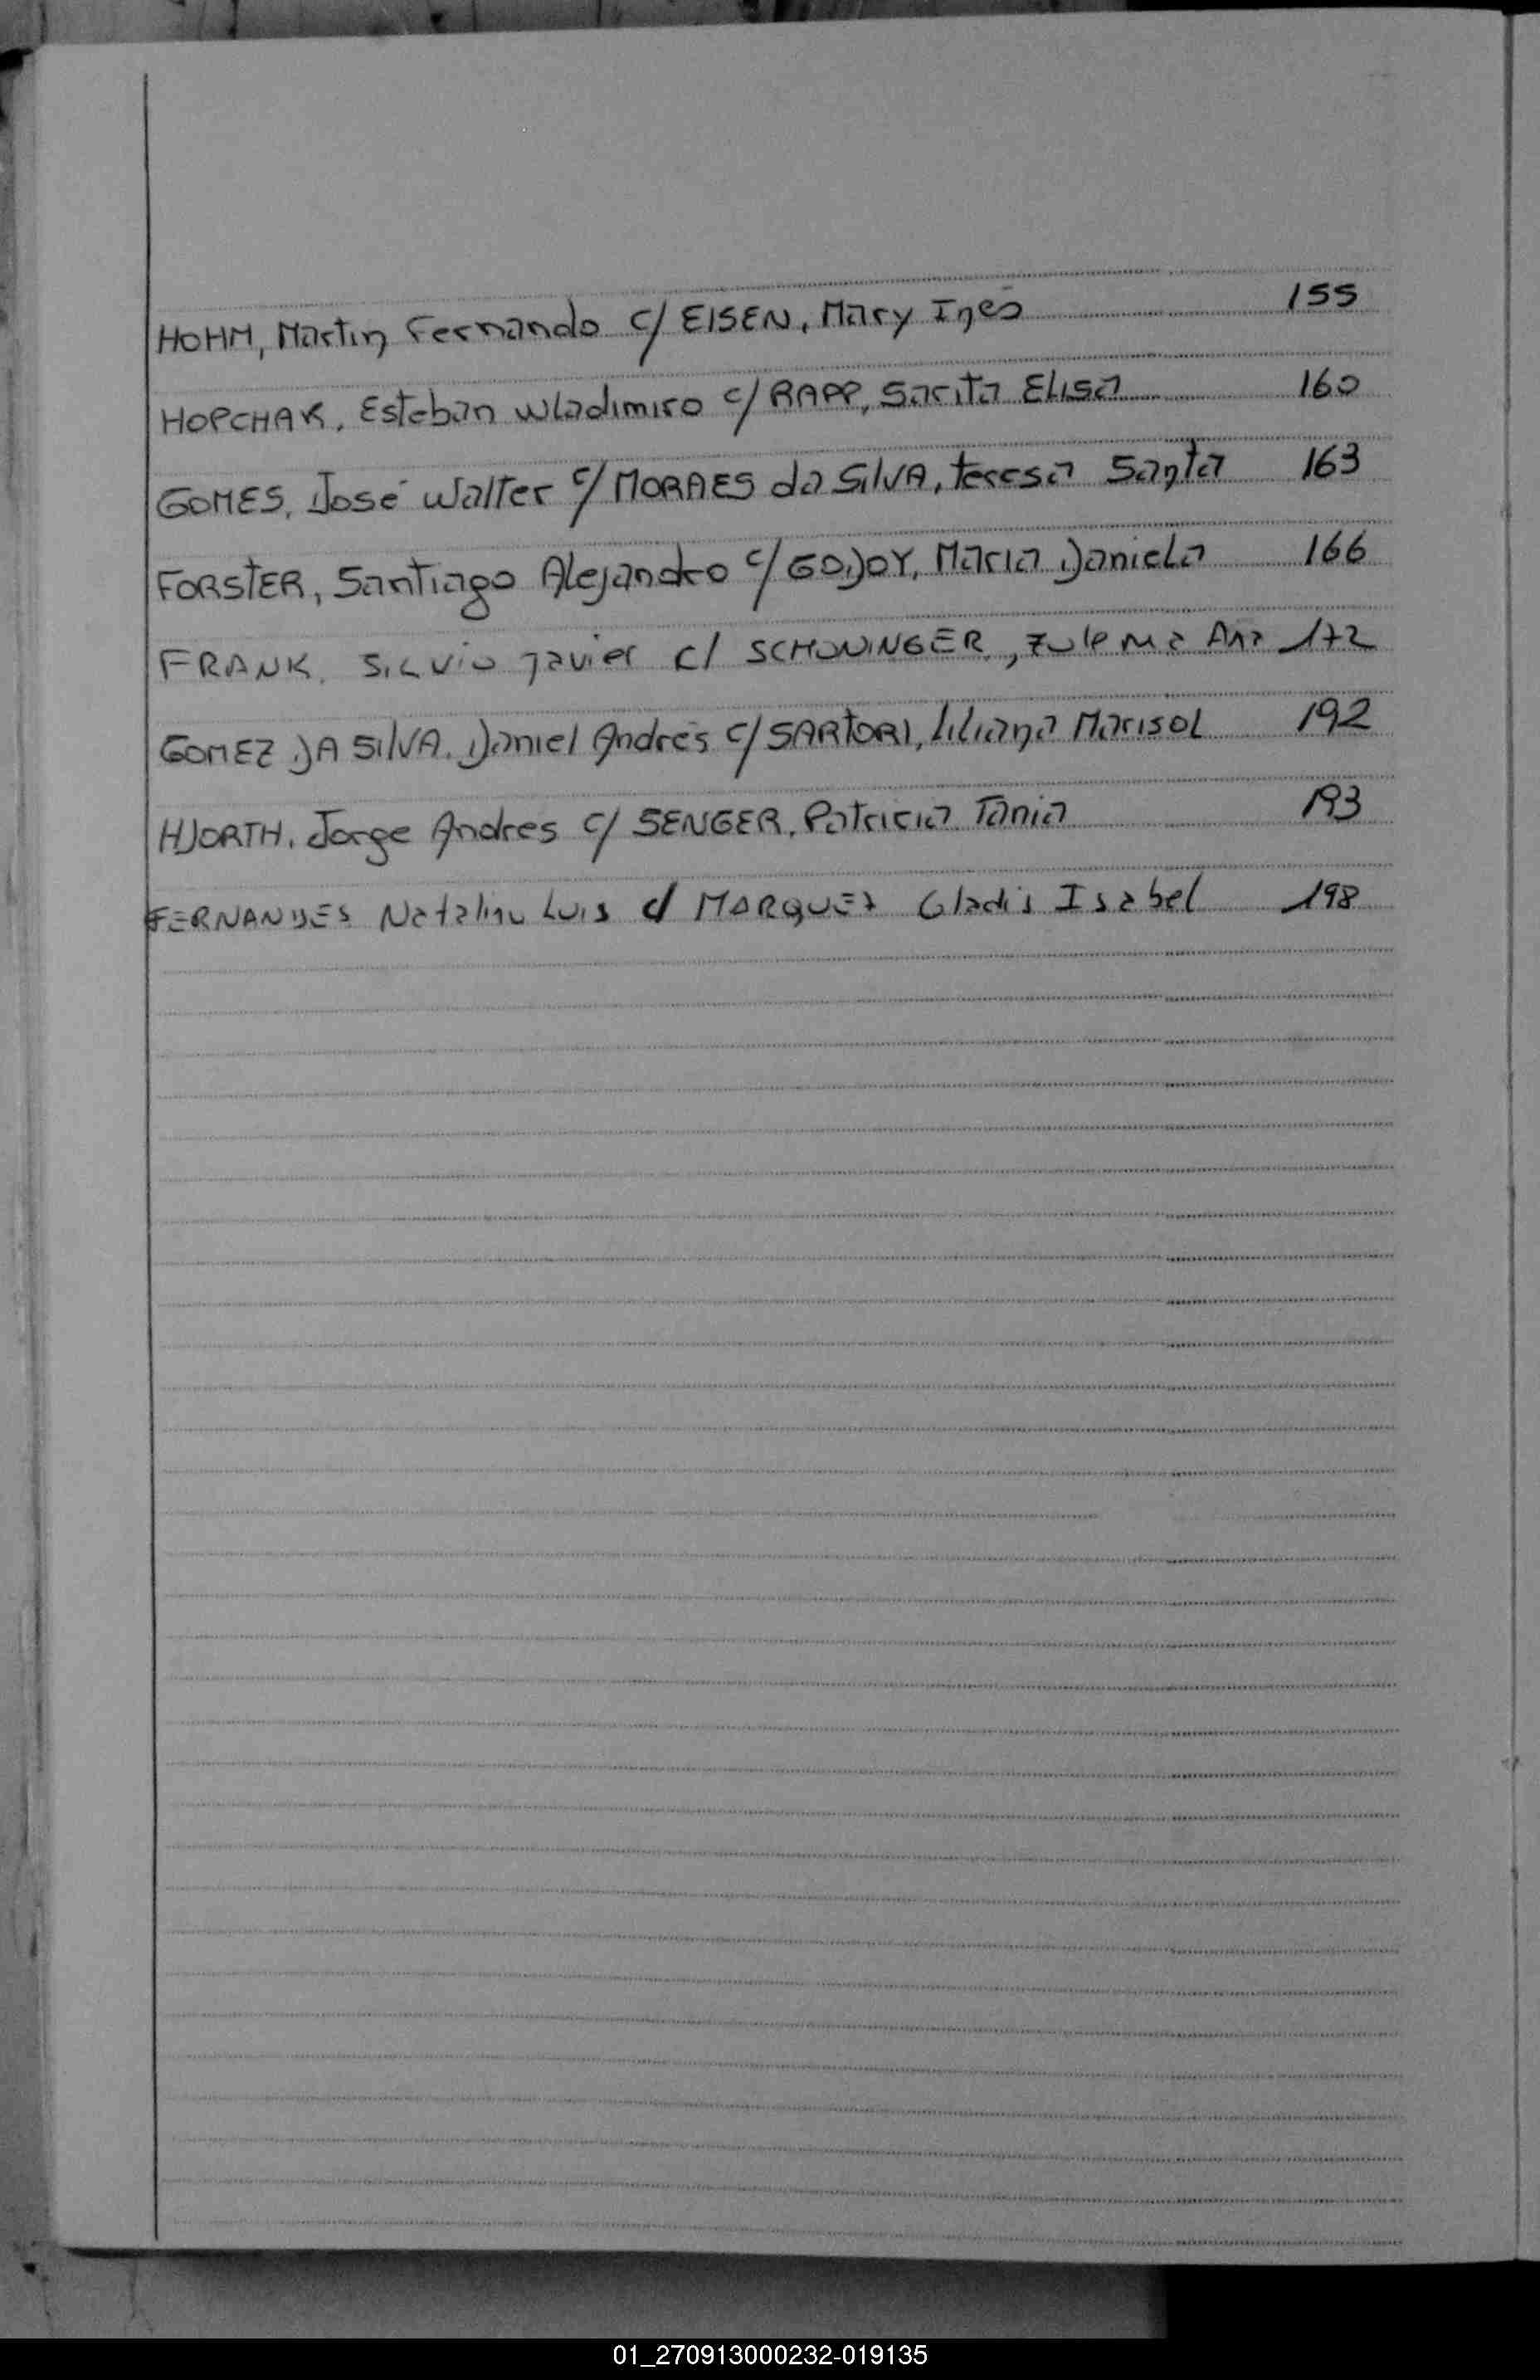 HOHM, Martin Fernando c/ EISEN, Mary Inés 155
HOPCHAK, Esteban Wladimiro c/ RAPP, Sarita Elisa 160
GOMES, José Walter c/ MORAES da SilVA, teresa Santa 163
FORSTER, Santiago Alejandro c/ GODOY, Maria Daniela 166
FRANK, Silvio Javier c/ SCHONINGER, Zulema Ana 172
GOMEZ DA SilVA, Daniel Andrés c/ SARTORI, liliana Marisol 192
HJORTH, Jorge Andres c/ SENGER, Patricia Tania 193
FERNANDES Natalino Luis c/ MARQUEZ Gladis Isabel 198
01_270913000232-019135